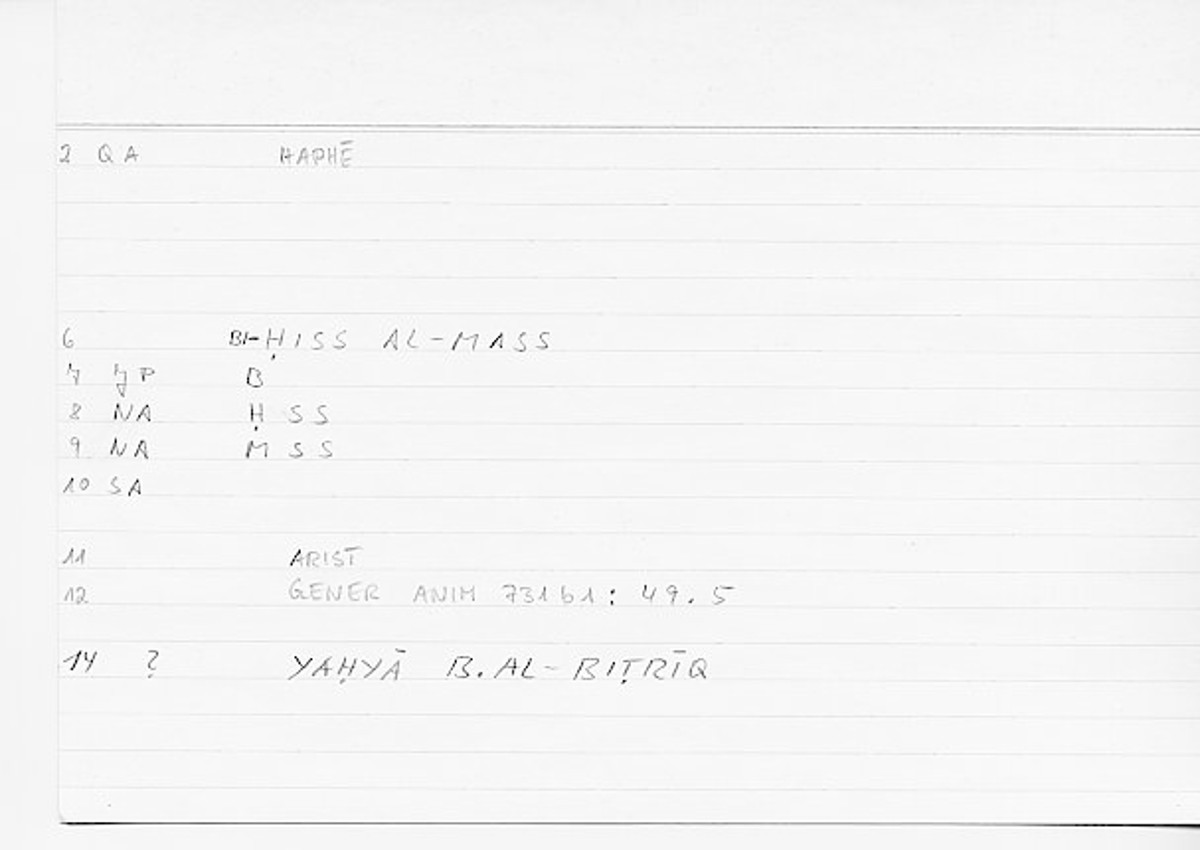 2 QA HAPHĒ
6 BI-ḤISS AL-MASS
7 JP B
8 NA Ḥ S S
9 NA M S S
10 SA
11 ARIST
12 GENER ANIM 731b1: 49.5
14 ? YAḤYĀ B. AL-BIṬRĪQ